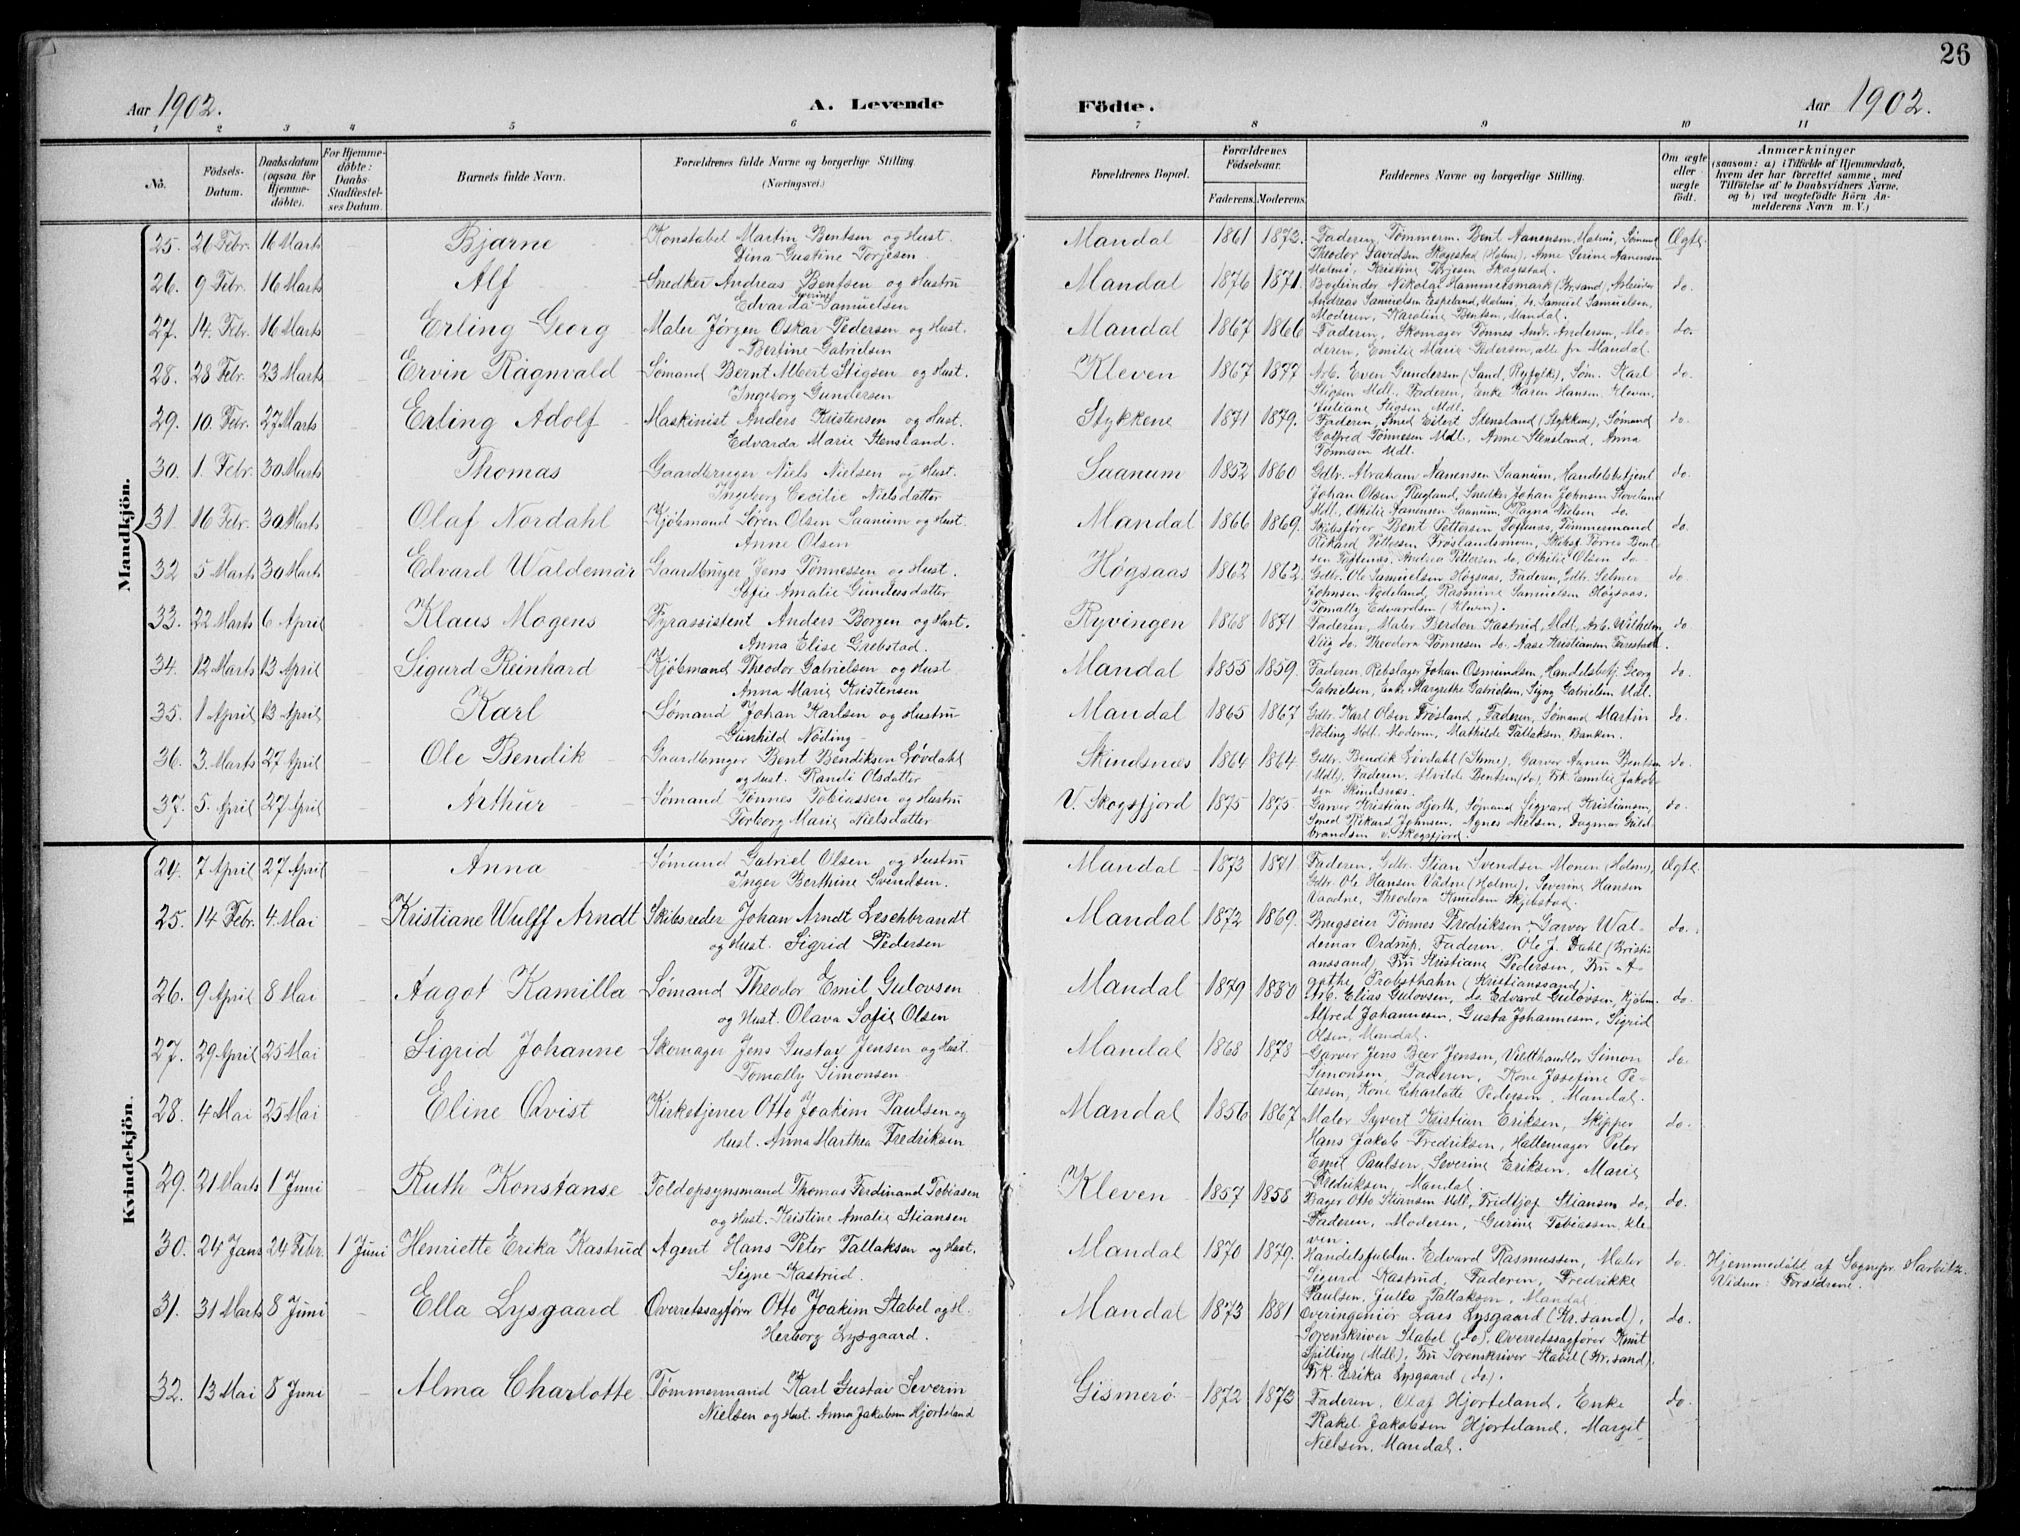 26
Aar 1902. A. Levende Födte. Aar 1902.
1 2 3 4 5 6 7 8 9 10 11
No. Födsels-Datum. Daabsdatum (ogsaa for Hjemmedöbte). For Hjemmedöbte: Daabs-Stadfæstelses Datum. Barnets fulde Navn. Forældrenes fulde Navne og borgerlige Stilling. (Næringsvei.) Forældrenes Bopæl. Forældrenes Födselsaar. Faderens. Moderens. Faddernes Navne og borgerlige Stilling. Om ægte eller uægte födt. Anmærkninger (saasom: a) i Tilfælde af Hjemmedaab, hvem der har forrettet samme, med Tilföielse af to Daabsvidners Navne, og b) ved uægtefödte Börn Anmelderens Navn m. V.)
Mandkjön.
25. 26 Febr. 16 Marts - Bjarne Konstabel Martin Bentsen og Hust. Mandal 1861 1873. Faderen, Tømmerm. Bent Aanensen, Malmø, Sømand Ægte
Dina Gustine Torjesen. Theodor Davidsen Skogestad (Holme), Anne Serine Aanensen
26. 9 Febr. 16 Marts - Alf Snedker Andreas Bentsen og Hustru Mandal 1876 1871. Malmø, Kristine Torjesen Skagestad. do.
Edvarda Severine Samuelsen Bogbinder Nikolai Hammersmark (Kr.sand), Arbeider
Andreas Samuelsen Espeland, Malmø, Samuel Samuelsen,
27. 14. Febr. 16 Marts - Erling Georg Maler Jørgen Oskar Pedersen og Hust. Mandal 1867 1866 Moderen, Karoline Bentsen, Mandal. do.
Bertine Gabrielsen Faderen, Skomager Tønnes Andr. Andersen, Moderen, Emilie Marie Pedersen, alle fra Mandal.
28. 28 Febr. 23 Marts - Ervin Ragnvald Sømand Bernt Albert Stigsen og Hust. Kleven 1867 1877 Arb. Even Gundersen (Sand, Ryfylk), Søm. Karl do.
Ingeborg Gundersen Stigsen Mdl. Faderen, Enke Karen Hansen, Kleven,
29. 10. Febr. 27 Marts - Erling Adolf Maskinist Anders Kristensen og Hust. Stykkene 1871 1879. Juliane Stigsen Mdl. do.
Edvarda Marie Stensland. Faderen, Smed Eilert Stensland (Stykkene), Sømand
Gotfred Tønnesen Mdl., Anne Stensland, Anna
30. 1. Febr. 30 Marts - Thomas Gaardbruger Niels Nielsen og Hust. Saanum 1852 1860 Tønnesen Mdl. do.
Ingeborg Cecilie Nielsdatter Gdbr. Abraham Aanensen Saanum, Handelsbetjent
Johan Olsen Rugland, Snedker Johan Johnsen Stoveland
31. 16 Febr. 30 Marts - Olaf Nordahl Kjøbmand Søren Olsen Saanum og Hust. Mandal 1866 1869. Mdl. Othilie Aanensen Saanum, Ragna Nielsen do. do.
Anne Olsen Skibsfører Bent Pettersen Tofenæs, Tømmermand
Rikard Pettersen Frøslandsmoen, Skibsf. Tørres Bent-
32 5 Marts 30 Marts - Edvard Waldemar Gaardbruger Jens Tønnessen og Hust. Høgsaas 1862 1862. sen Tofenæs, Andrea Pettersen do. Othilie Olsen do. do
Sofie Amalie Gundersdatter Gdbr. Ole Samuelsen, Høgsaas, Faderen, Gdbr. Selmer
Johnsen Nodeland, Rasmine Samuelsen Høgsaas.
33. 22 Marts 6 April - Klaus Mogens Fyrassistent Anders Borgen og Hust. Ryvingen 1868 1871 Tomally Edvardsen (Kleven). do.
Anna Elise Grebstad. Faderen, Maler Berdon Kastrud, Mdl, Arb. Wilhelm
Viig do. Theodora Tønnesen do. Aase Kristiansen Farestad
34. 12 Marts 13 April - Sigurd Reinhard Kjøbmand Theodor Gabrielsen og Hust Mandal 1855 1859. Faderen, Rebslager Johan Osmundsen, Handelsbetj. Georg do.
Anna Marie Kristensen Gabrielsen, Enke Margrethe Gabrielsen, Signy Gabrielsen Mdl.
35. 1 April 13 April - Karl Sømand Johan Karlsen og Hustru Mandal 1865 1867 Gdbr. Karl Olsen Frøsland, Faderen, Sømand Martin do.
Gunhild Nöding Nöding Mdl. Moderen, Mathilde Tallaksen, Banken.
36. 3. Marts 27 April - Ole Bendik Gaardbruger Bent Bendiksen Løvdahl Skindsnæs 1864 1864 Gdbr. Bendik Løvdahl (Holme), Garver Aanen Bentsen do.
og Hust. Randi Olsdatter (Mdl), Faderen, Alvilde Bentsen (do), Frk. Emilie Jakob-
37. 5. April 27 April - Arthur Sømand Tønnes Tobiassen og Hustru V. Skogsfjord 1875 1875 sen Skindsnæs. do.
Torborg Marie Nielsdatter Garver Kristian Hjorth, Sømand Sigvard Kristiansen,
Smed Rikard Johnsen, Agnes Nielsen, Dagmar Guldbrandsen v. Skogsfjord.
Kvindekjön.
24. 7 April 27 April - Anna Sømand Gabriel Olsen og Hustru Mandal 1873 1871 Faderen, Gdbr. Stian Svendsen Monen (Holme) Ægte.
Inger Berthine Svendsen. Gdbr. Ole Hansen Vådne (Holme), Severine Hansen
Vaadne, Theodora Knudsen Skjebstad.
25. 14 Febr. 4. Mai - Kristiane Wulff Arndt Skibsreder Johan Arndt Leschbrandt Mandal 1872 1869. Brugseier Tønnes Fredriksen, Garver Wal- do.
og Hust. Sigrid Pedersen demar Ordrup, Faderen, Ole J. Dahl (Kristi-
anssand) Fru Kristiane Pedersen, Fru A-
26. 9 April 8 Mai - Aagot Kamilla Sømand Theodor Emil Gulovsen Mandal 1879 1880 gathe Probsthahn (Kristianssand). do.
og Hust. Olava Sofie Olsen Arb. Elias Gulovsen, do. Edvard Gulovsen, Kjøbm.
Alfred Johannesen, Gusta Johannesen, Sigrid
27. 29 April 25 Mai - Sigrid Johanne Skomager Jens Gustav Jensen og Hust. Mandal 1868 1878 Olsen, Mandal. do.
Tomally Simonsen Garver Jens Beer Jensen, Vildthandler Simon
Simonsen, Faderen, Kone Josefine Pe-
28. 4 Mai 25 Mai - Eline Qvist Kirketjener Otto Joakim Paulsen og Mandal 1856 1867 tersen, Kone Charlotte Pedersen, Mandal. do.
Hust. Anna Marthea Fredriksen Maler Syvert Kristian Eriksen, Skipper
Hans Jakob Fredriksen, Hattemager Peter
Emil Paulsen, Severine Eriksen, Marie
29. 21 Marts 1 Juni - Ruth Konstanse Toldopsynsmand Thomas Ferdinand Tobiasen Kleven 1857 1858 Fredriksen, Mandal. do.
og Hust. Kristine Amalie Stiansen Bager Otto Stiansen Mdl., Fridtjof Stiansen do,
Faderen, Moderen, Gurine Tobiassen, Kle-
30. 24 Jan. 24 Febr. 1 Juni Henriette Erika Kastrud Agent Hans Peter Tallaksen og Hust. Mandal 1870 1879. ven. do. Hjemmedøbt af Sognepr. Harbitz.
Signe Kastrud. Handelsfuldm. Edvard Rasmussen, Maler Vidner: Forældrene.
Sigurd Kastrud, Faderen, Fredrikke
31. 31 Marts 8 Juni - Ella Lysgaard Overretssagfører Otto Joakim Stabel og H. Mandal 1873 1881 Paulsen, Julla Tallaksen, Mandal do.
Herborg Lysgaard. Overingeniør Laes Lysgaard (Kr.sand),
Sorenskriver Stabel (do), Overretssagfører Knut
Spilling (Mdl), Fru Sorenskriver Stabel (Kr.sand),
32. 13 Mai 8 Juni - Alma Charlotte Tømmermand Karl Gustav Severin Gismerö 1872 1873 Frk. Erika Lysgaard (do). do.
Nielsen og Hust. Anna Jakobsen Hjorteland Faderen, Olaf Hjorteland, Enke
Rakel Jakobsen Hjorteland, Margit
Nielsen, Mandal.